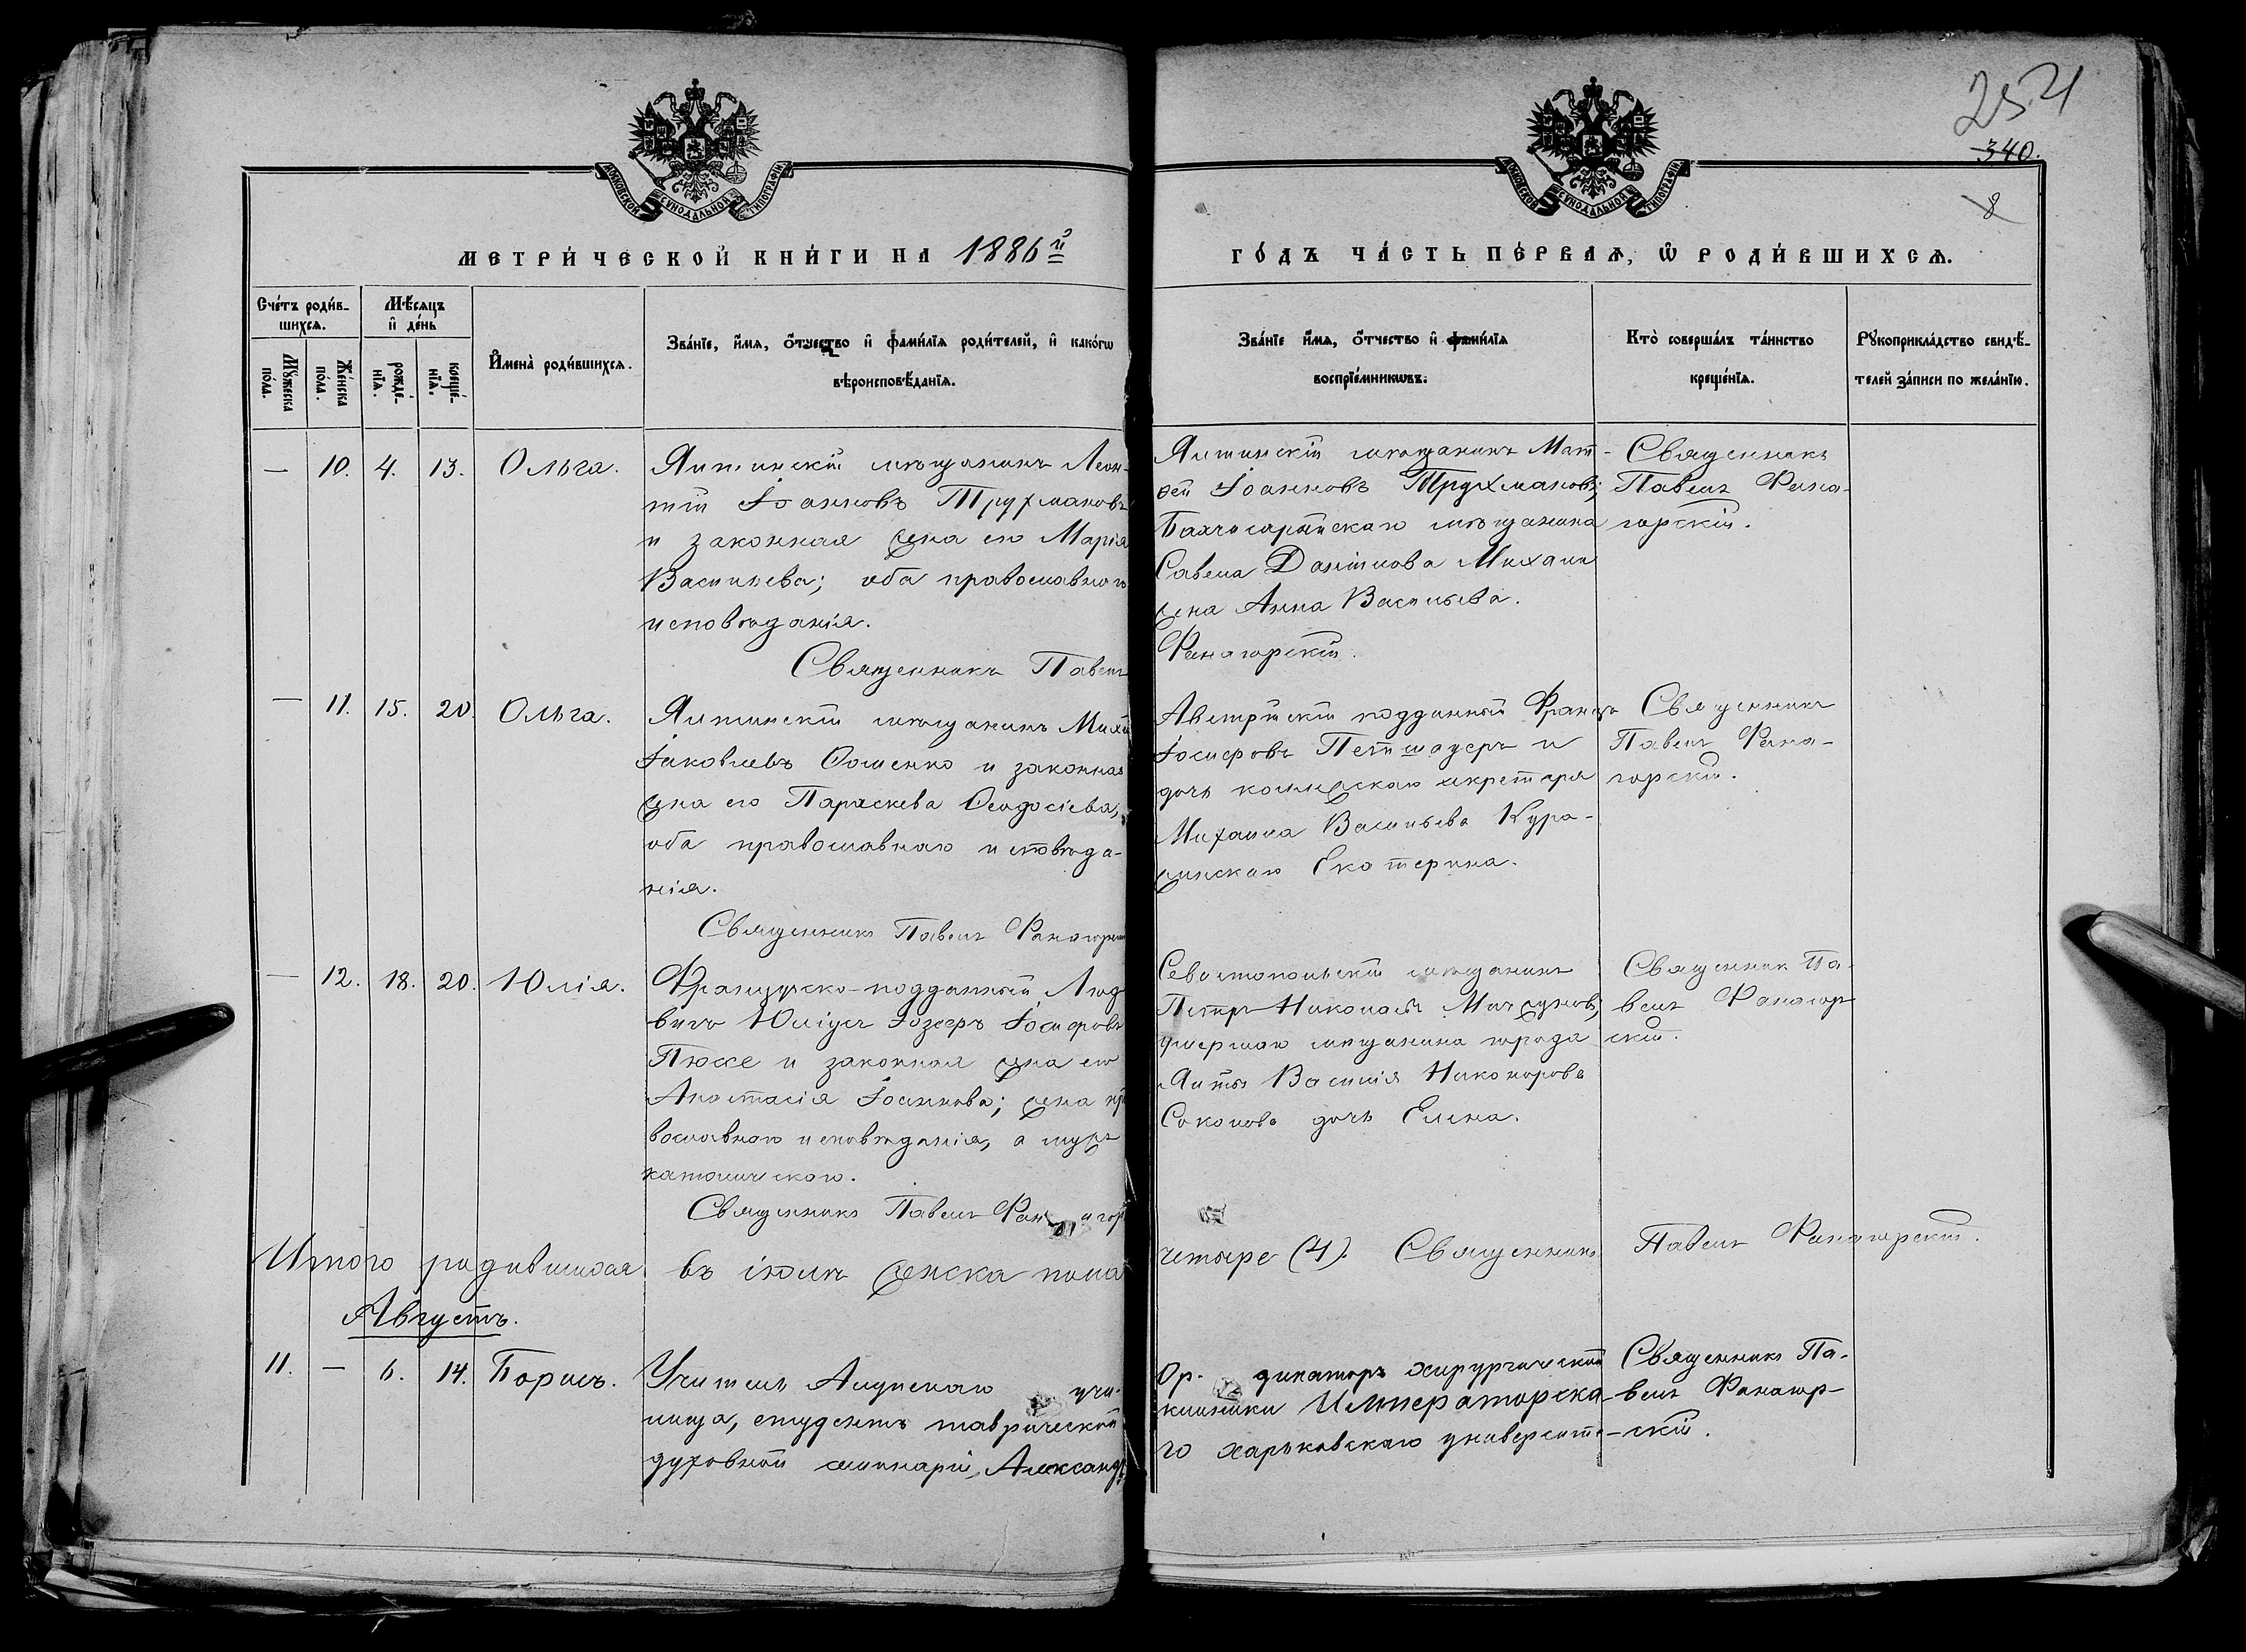 254
340.
8
МОСКОВСКОЙ СѴНОДАЛЬНОЙ ТИПОГРАФІИ
МОСКОВСКОЙ СѴНОДАЛЬНОЙ ТИПОГРАФІИ
МЕТРИ́ЧЕСКОЙ КНИ́ГИ НА 1886й
ГО́ДЪ ЧА́СТЬ ПЕ́РВАЯ, Ѡ РОДИ́ВШИХСЯ.
Сче́тъ роди́в-
шихся.
Мѣ́сяцъ
и де́нь
Му́жеска по́ла.
Же́нска по́ла.
рожде́-
нія.
креще́-
нія.
Имена̀ роди́вшихся.
Зва́ніе, и́мя, о́тчество и фами́лія роди́телей, и како́гѡ
вѣроисповѣ́данія.
Зва́ніе и́мя, о́тчество и фами́лія
воспріе́мникѡвъ.
Кто̀ соверша́лъ та́инство
креще́нія.
Рꙋкоприкла́дство свидѣ́-
телей за́писи по жела́нію.
— 10. 4. 13. Ольга.
Ялтинскій мѣщанинъ Леон-
тій Іоанновъ Трухмановъ
и законная жена его Марія
Васильева; оба православнаго
исповѣданія.
Священникъ Павелъ
Ялтинскій мѣщанинъ Мат-
ѳей Іоанновъ Трухмановъ;
Бахчисарайскаго мѣщанина
Савела Данилова Михаил
жена Анна Васильева.
Фанагорскій.
Священникъ
Павелъ Фана-
горскій.
— 11. 15. 20. Ольга.
Ялтинскій мѣщанинъ
Іаковлевъ и законная
жена его Параскева Ѳеодосіева,
оба православнаго исповѣда-
нія.
Священникъ Павелъ Фанагорскі
Австрійскій подданный Францъ
Іосифовъ Петшауеръ и
дочь коллежскаго секретаря
Михаила Васильева Кура-
жинскаго Екатерина.
Священникъ
Павелъ Фана-
горскій.
— 12. 18. 20. Юлія.
Французско-подданный Люд
вигъ Юліусъ Іозефъ Іосифовъ
Пюссе и законная жена его
Анастасія Іоаннова; жена пра
вославнаго исповѣданія, а мужъ
католическаго.
Священникъ Павелъ Фанагор
Севастопольскій мѣщанинъ
Петръ Николаевъ
умершаго мѣщанина города
Ялты Василія Никонорова
Соколова дочь Елена.
Священникъ Па-
велъ Фанагор-
скій.
Итого родившихся въ іюлѣ женска пола четыре (4). Священникъ Павелъ Фанагорскій.
Августъ.
11. — 6. 14. Борисъ.
Учитель Алупскаго учи-
лища, студентъ таврической
духовной семинаріи, Александ
Ор- динаторъ хирургической
клиники Императорска-
го харьковскаго университе-
Священникъ Па-
велъ Фанагор-
скій.